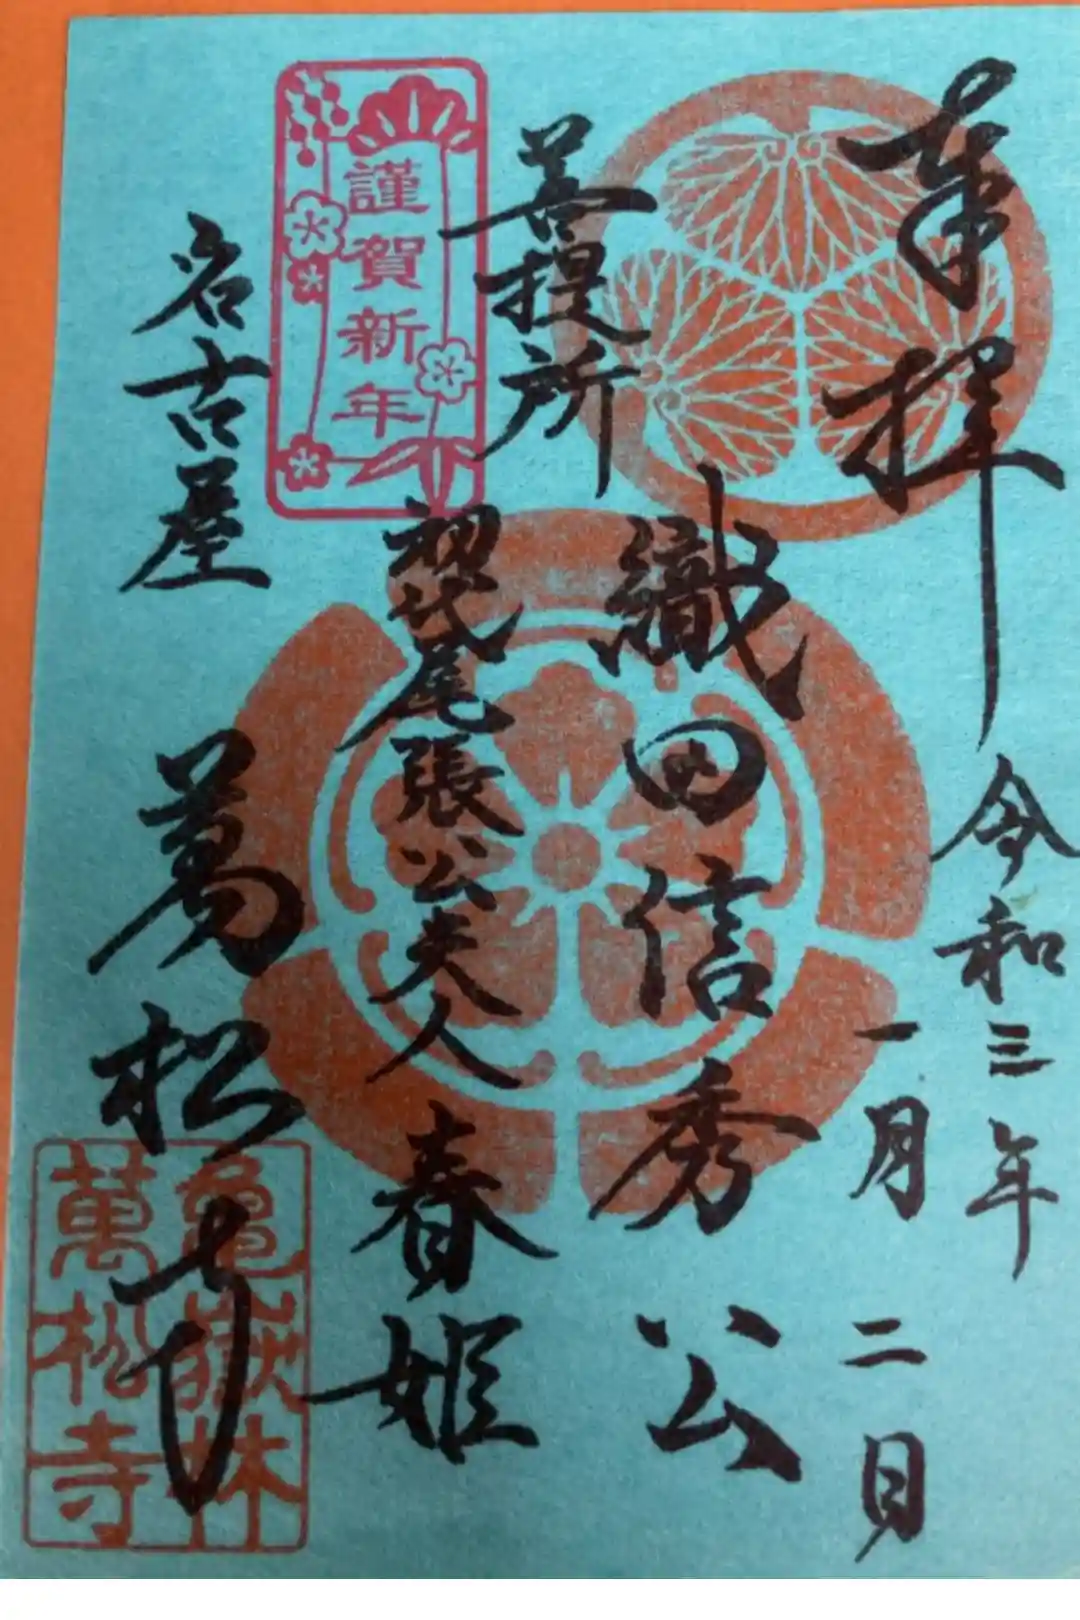 奉拝
令和三年
一月二日
菩提所
織田信秀公
謹賀新年
初代尾張公夫人
春姫
名古屋
萬松寺
亀嶽林
萬松寺